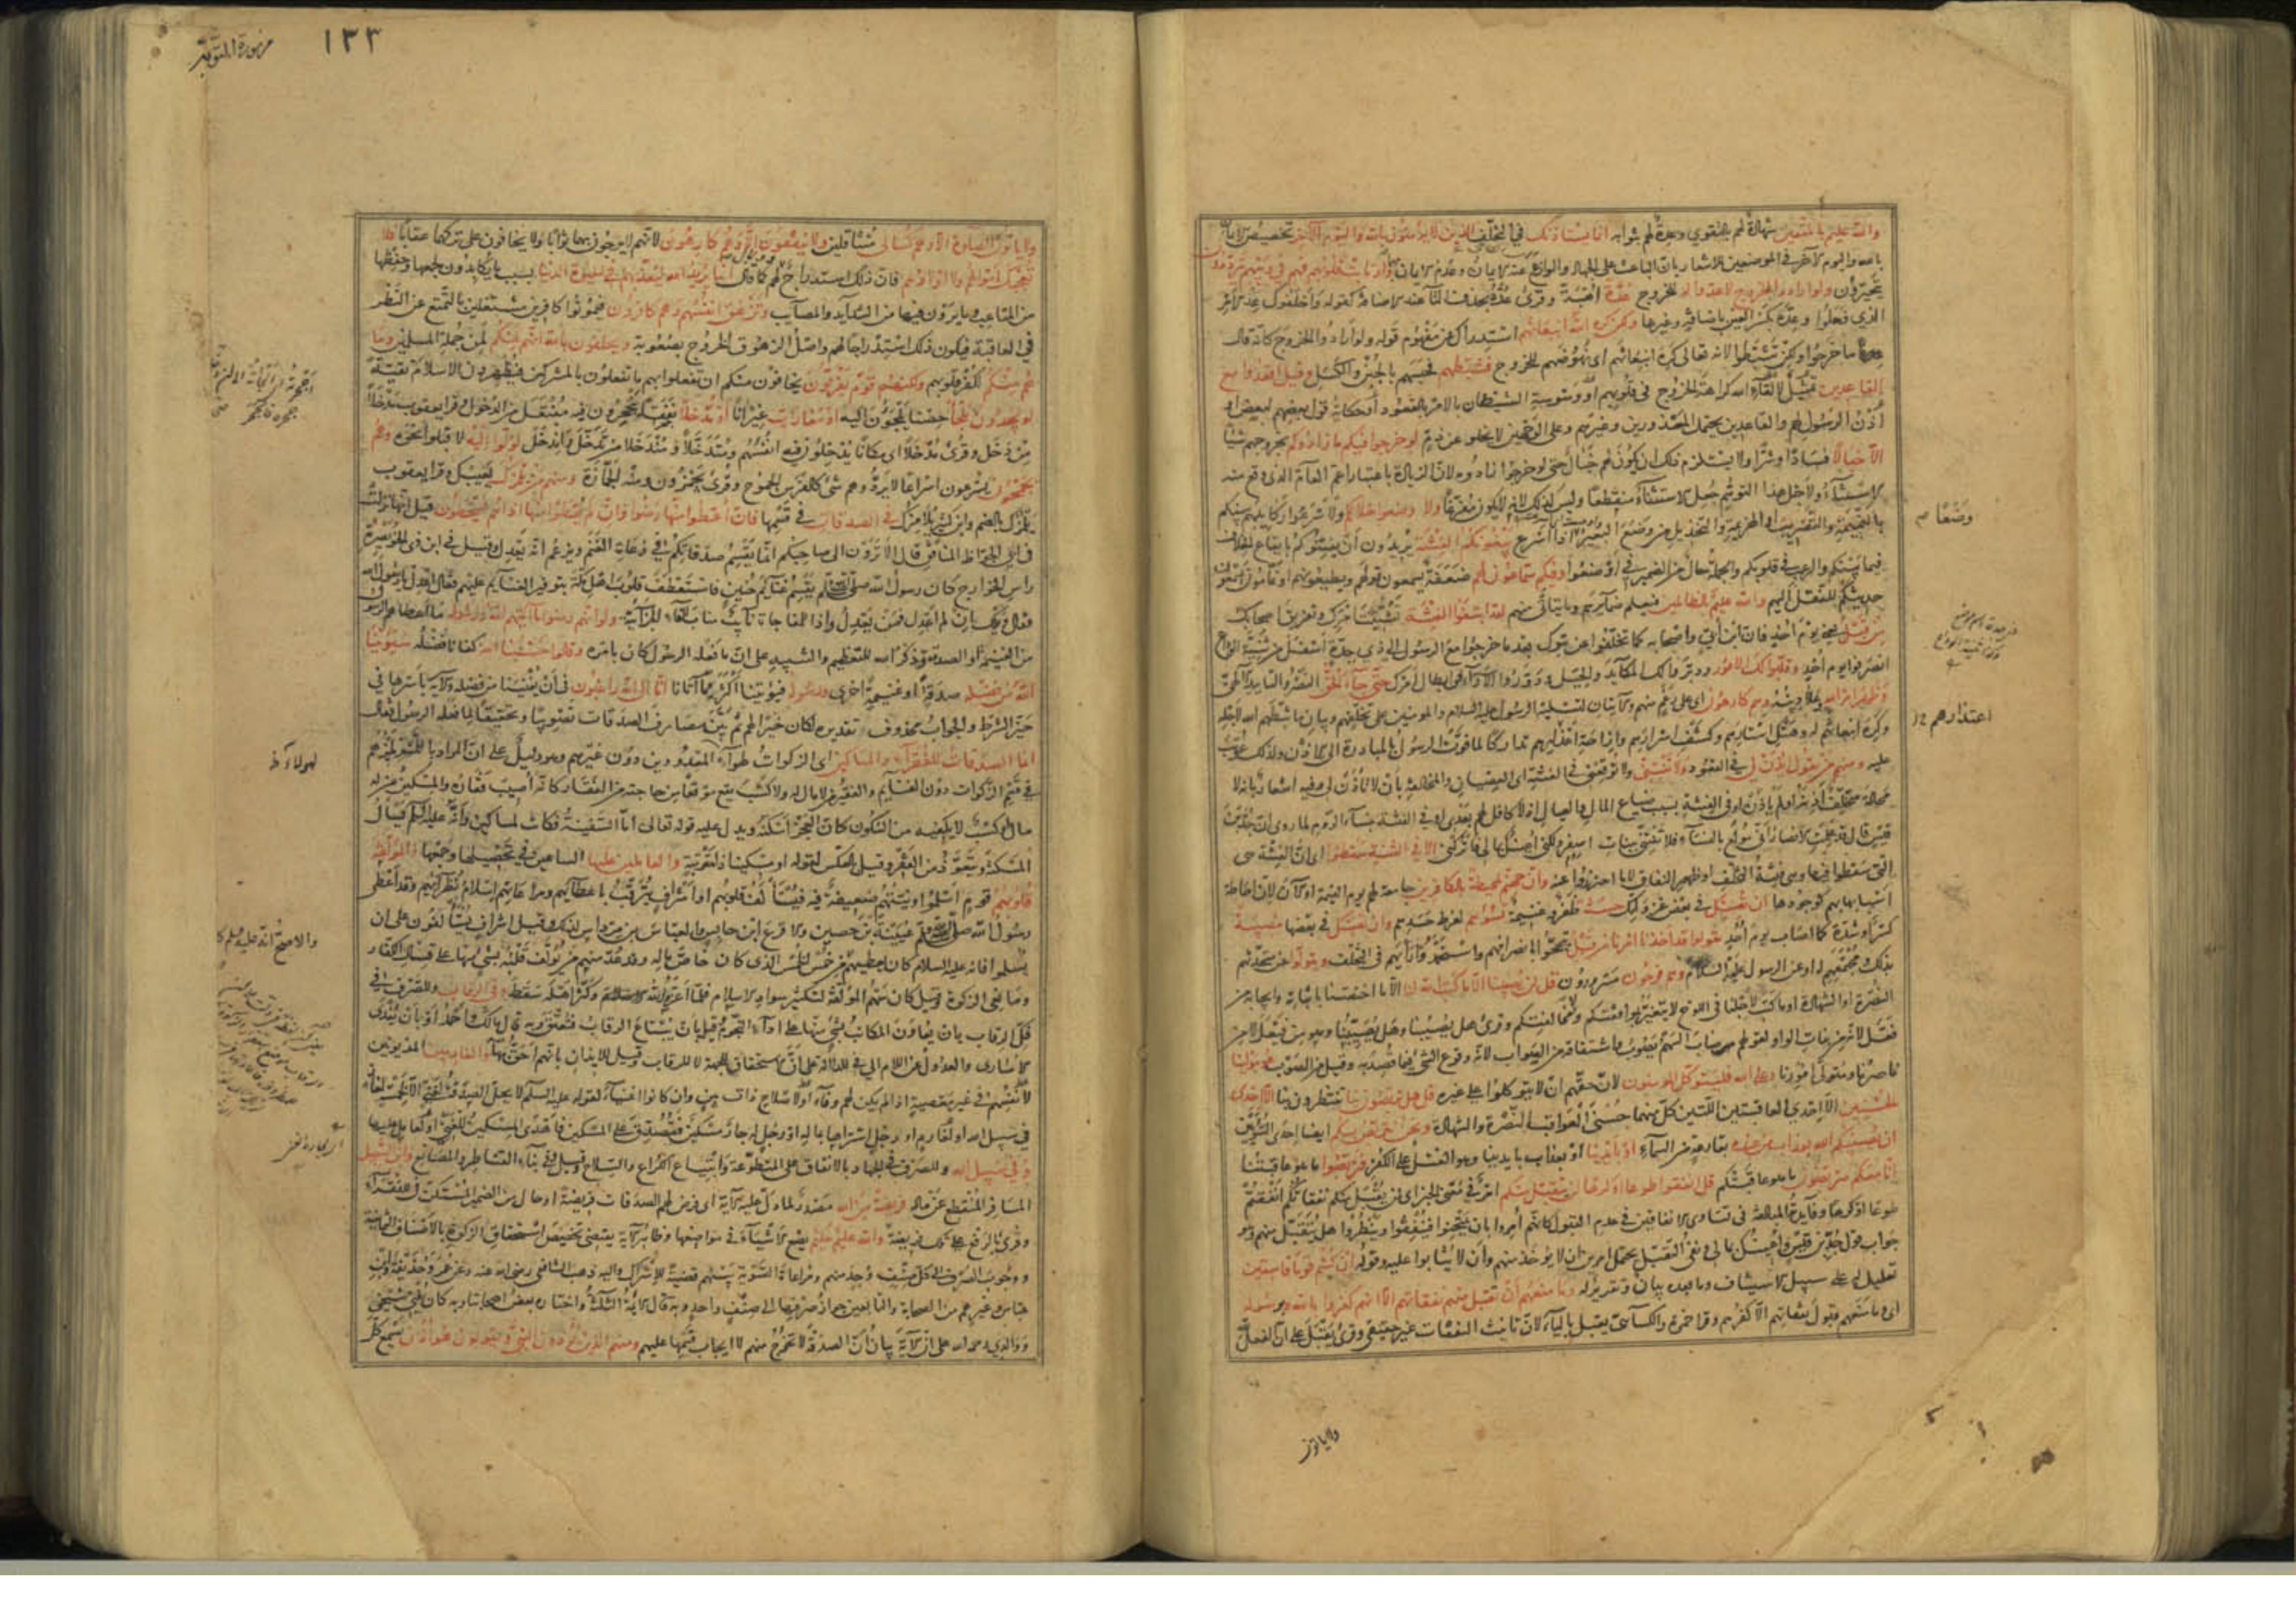 والله عليم بالمتقين شهادة لهم بالتقوى وعدة لهم بثوابه انما يستأذنك في التخلف الذين لا يؤمنون بالله واليوم الآخر تخصيص الايمان
بالله واليوم الآخر في الموضعين للاشعار بان الباعث على الجهاد والوازع عنه الايمان وعدم الايمان بهما وارتابت قلوبهم فهم في ريبهم يترددون
يتحيرون ولو ارادوا الخروج لاعدوا له للخروج عدة اهبة وقرئ عده بحذف التاء عند الاضافة كقوله واخلفوك عد الامر
الذي وعدوا وعده بكسر العين باضافة وغيرها ولكن كره الله انبعاثهم استدراك عن مفهوم قوله ولو ارادوا الخروج كانه قال
ما خرجوا ولكن تثبطوا لانه تعالى كره انبعاثهم اى نهوضهم للخروج فثبطهم فحبسهم بالجبن والكسل وقيل اقعدوا مع
القاعدين تمثيل لالقاء الله كراهة الخروج في قلوبهم او وسوسة الشيطان بالامر بالقعود او حكاية قول بعضهم لبعض او
اذن الرسول لهم والقاعدين يحتمل المعذورين وغيرهم وعلى الوجهين لا يخلو عن ذم لو خرجوا فيكم ما زادوكم بخروجهم شيئا
الا خبالا فسادا وشرا ولا يستلزم ذلك ان يكون لهم خبال حتى لو خرجوا زادوه لان الزيادة باعتبار اعم العام الذي وقع منه
الاستثناء ولاجل هذا التوهم جعل الاستثناء منقطعا وليس كذلك لانه لا يكون مفرغا ولا وضعوا خلالكم ولاسرعوا ركايبهم بينكم
بالنميمة والتضريب او الهزيمة والتخذيل من وضع البعير اذا اسرع يبغونكم الفتنة يريدون ان يفتنوكم بايقاع الخلاف
فيما بينكم والرعب في قلوبكم والجملة حال من الضمير في اوضعوا وفيكم سماعون لهم ضعفة يسمعون قولهم ويطيعونهم او نمامون يسمعون
حديثكم للنقل اليهم والله عليم بالظالمين فيعلم ضمايرهم وما يتأتى منهم لقد ابتغوا الفتنة تشتيت امرك وتفريق اصحابك
من قبل يعني يوم احد فان ابن ابي واصحابه كما تخلفوا عن تبوك بعد ما خرجوا مع الرسول الى ذي جدة اسفل من ثنية الوداع
انصرفوا يوم احد وقلبوا لك الامور ودبروا لك المكايد والحيل ودوروا الآراء في ابطال امرك حتى جاء الحق النصر والتاييد الالهي
وظهر امر الله وعلا دينه وهم كارهون اى على رغم منهم والآيتان لتسلية الرسول عليه السلام والمؤمنين على تخلفهم وبيان ما ثبطهم الله لاجله
وكره انبعاثهم له وهتك استارهم وكشف اسرارهم وازاحة اعذارهم تداركا لما فوت الرسول بالمبادرة الى الاذن ولذلك عوتب
عليه ومنهم من يقول ائذن لي في القعود ولا تفتني ولا توقعني في الفتنة اى العصيان والمخالفة بان لا تأذن لي وفيه اشعار بانه لا
محالة متخلف اذن له او لم ياذن او في الفتنة بسبب ضياع المال والعيال اذ لا كافل لهم بعدي او في الفتنة بنساء الروم لما روى ان جد بن
قيس قال قد علمت الانصار اني مولع بالنساء فلا تفتني ببنات اصفر ولكني اعينك بمالي فاتركني الا في الفتنة سقطوا اى ان الفتنة هي
التي سقطوا فيها وهي فتنة التخلف او ظهور النفاق لا ما احترزوا عنه وان جهنم لمحيطة بالكافرين جامعة لهم يوم القيمة او الآن لان احاطة
اسبابها بهم كوجودها ان تصبك في بعض غزواتك حسنة ظفر وغنيمة تسؤهم لفرط حسدهم وان تصبك في بعضها مصيبة
كسر او شدة كما اصاب يوم احد يقولوا قد اخذنا امرنا من قبل تبجحوا بانصرافهم واستحمدوا رأيهم في التخلف ويتولوا عن متحدثهم
بذلك ومجتمعهم له او عن الرسول عليه السلام وهم فرحون مسرورون قل لن يصيبنا الا ما كتب الله لنا الا ما اختصنا باثباته وايجابه من
النصرة او الشهادة او ما كتب لاجلنا في اللوح لا يتغير بموافقتكم ولا بمخالفتكم وقرئ هل يصيبنا وهل يصيبنا وهو من فيعل لا من
فعل لانه من بنات الواو لقولهم صاب السهم يصوب واشتقاقه من الصواب لانه وقوع الشئ فيما قصد به وقيل من الصوب هو مولينا
ناصرنا ومتولي امورنا وعلى الله فليتوكل المؤمنون لان حقهم ان لا يتوكلوا على غيره قل هل تربصون بنا تنتظرون بنا الا احدى
الحسنيين الا احدى العاقبتين اللتين كل منهما حسنى العواقب النصرة والشهادة ونحن نتربص بكم ايضا احدى السوئين
ان يصيبكم الله بعذاب من عنده بقارعة من السماء او بايدينا او بعذاب بايدينا وهو القتل على الكفر فتربصوا ما هو عاقبتنا
انا معكم متربصون ما هو عاقبتكم قل انفقوا طوعا او كرها لن يتقبل منكم امر في معنى الخبر اى لن يتقبل منكم نفقاتكم انفقتم
طوعا او كرها وفايدته المبالغة في تساوى الانفاقين في عدم القبول كانهم امروا بان يمتحنوا فينفقوا وينظروا هل يتقبل منهم وهو
جواب قول جد بن قيس واعينك بمالي ونفى التقبل يحتمل امرين ان لا يؤخذ منهم وان لا يثابوا عليه وقوله انكم كنتم قوما فاسقين
تعليل له على سبيل الاستيناف وما بعده بيان وتقرير له وما منعهم ان تقبل منهم نفقاتهم الا انهم كفروا بالله وبرسوله
اى وما منعهم قبول نفقاتهم الا كفرهم وقرا حمزة والكسائي يقبل بالياء لان تانيث النفقات غير حقيقي وقرئ يقبل على ان الفعل لله
وضعًا
اعتذارهم
ولا ياتون
١٣٣
سورة التوبة
ولا ياتون الصلوة الا وهم كسالى متثاقلين ولا ينفقون الا وهم كارهون لانهم لا يرجون بهما ثوابا ولا يخافون على تركهما عقابا فلا
تعجبك اموالهم ولا اولادهم فان ذلك استدراج لهم كما قال انما يريد الله ليعذبهم بها في الحيوة الدنيا بسبب ما يكابدون لجمعها وحفظها
من المتاعب وما يرون فيها من الشدايد والمصايب وتزهق انفسهم وهم كافرون فيموتوا كافرين مشتغلين بالتمتع عن النظر
في العاقبة فيكون ذلك استدراجا لهم واصل الزهوق الخروج بصعوبة ويحلفون بالله انهم لمنكم لمن جملة المسلمين وما
هم منكم لكفر قلوبهم ولكنهم قوم يفرقون يخافون منكم ان تفعلوا بهم ما تفعلون بالمشركين فيظهرون الاسلام تقية
لو يجدون ملجأ حصنا يلجؤن اليه او مغارات غيرانا او مدخلا نفقا ينجحرون فيه مفتعل من الدخول وقرا يعقوب مدخلا
من دخل وقرئ مدخلا اى مكانا يدخلون فيه انفسهم ومتدخلا ومندخلا من تدخل واندخل لولوا اليه لاقبلوا نحوه وهم
يجمحون يسرعون اسراعا لا يردهم شئ كالفرس الجموح وقرئ يجمزون ومنه الجمازة ومنهم من يلمزك يعيبك وقرا يعقوب
يلمزك بالضم وابن كثير يلامزك في الصدقات في قسمها فان اعطوا منها رضوا وان لم يعطوا منها اذا هم يسخطون قيل انها نزلت
في ابي الجواظ المنافق قال الا ترون الى صاحبكم انما يقسم صدقاتكم في رعاة الغنم ويزعم انه يعدل وقيل في ابن ذي الخويصرة
راس الخوارج كان رسول الله صلى الله عليه وسلم يقسم غنايم حنين فاستعطف قلوب اهل مكة بتوفير الغنايم عليهم فقال اعدل يا رسول الله
فقال ويلك ان لم اعدل فمن يعدل واذا للمفاجاة نائب مناب الفاء الجزائية ولو انهم رضوا ما آتيهم الله ورسوله ما اعطاهم الرسول
من الغنيمة او الصدقة وذكر الله للتعظيم والتنبيه على ان ما فعله الرسول كان بامره وقالوا حسبنا الله كفانا فضله سيؤتينا
الله من فضله صدقة او غنيمة اخرى ورسوله فيؤتينا اكثر مما آتانا انا الى الله راغبون في ان يغنينا من فضله والآية باسرها في
حيز الشرط والجواب محذوف تقديره لكان خيرا لهم ثم بين مصارف الصدقات تصويبا وتحقيقا لما فعله الرسول فقال
انما الصدقات للفقراء والمساكين اى الزكوات لهؤلاء المعدودين دون غيرهم وهو دليل على ان المراد باللمز لمزهم
في قسم الزكوات دون الغنايم والفقير من لا مال له ولا كسب يقع موقعا من حاجته من الفقار كانه اصيب فقاره والمسكين من له
مال او كسب لا يكفيه من السكون كان العجز اسكنه ويدل عليه قوله تعالى اما السفينة فكانت لمساكين وانه عليه السلم يسأل
المسكنة ويتعوذ من الفقر وقيل بالعكس لقوله او مسكينا ذا متربة والعاملين عليها الساعين في تحصيلها وجمعها والمؤلفة
قلوبهم قوم اسلموا ونيتهم ضعيفة فيه فيستألف قلوبهم او اشراف يترقب باعطائهم ومراعاتهم اسلام نظرائهم وقد اعطى
رسول الله صلى الله عليه وسلم عيينة بن حصين والاقرع ابن حابس والعباس بن مرداس لذلك وقيل اشراف يستألفون على ان
يسلموا فانه عليه السلام كان يعطيهم من خمس الخمس الذي كان خاص ماله وقد عد منهم من يؤلف قلبه بشئ منها على قتال الكفار
وما نعى الزكوة وقيل كان سهم المؤلفة لتكثير سواد الاسلام فلما اعزه الله وكثر اهله سقط وفي الرقاب وللصرف في
فك الرقاب بان يعاون المكاتب بشئ منها على اداء النجوم وقيل بان يبتاع الرقاب فتعتق وبه قال مالك واحمد او بان يفدى
الاسارى والعدول عن اللام الى في للدلالة على ان الاستحقاق للجهة لا للرقاب وقيل للايذان بانهم احق بها والغارمين المديونين
لانفسهم في غير معصية اذا لم يكن لهم وفاء او لاصلاح ذات البين وان كانوا اغنياء لقوله عليه السلم لا يحل الصدقة لغني الا لخمسة لغاز
في سبيل الله او لغارم او رجل اشتراها بماله او رجل له جار مسكين فتصدق على المسكين فاهدى المسكين للغني او لعامل عليها
وفي سبيل الله وللصرف في الجهاد بالانفاق على المتطوعة وابتياع الكراع والسلاح وقيل وفي بناء القناطر والمصانع وابن السبيل
المسافر المنقطع عن ماله فريضة من الله مصدر لما دل عليه الآية اى فرض لهم الصدقات فريضة او حال من الضمير المستكن في للفقراء
وقرئ بالرفع على تلك فريضة والله عليم حكيم يضع الاشياء في مواضعها وظاهر الآية يقتضي تخصيص استحقاق الزكوة بالاصناف الثمانية
ووجوب الصرف الى كل صنف وجد منهم ومراعاة التسوية بينهم قضية للاشراك واليه ذهب الشافعي رضى الله عنه وعن عمر وحذيفة وابن
عباس وغيرهم من الصحابة والتابعين جواز صرفها الى صنف واحد وبه قال الائمة الثلثة واختاره بعض اصحابنا وبه كان يفتي شيخي
ووالدي رحمهما الله على ان الآية بيان ان الصدقة لا تخرج منهم لا ايجاب قسمها عليهم ومنهم الذين يؤذون النبي ويقولون هو اذن يسمع كل
لهولاء